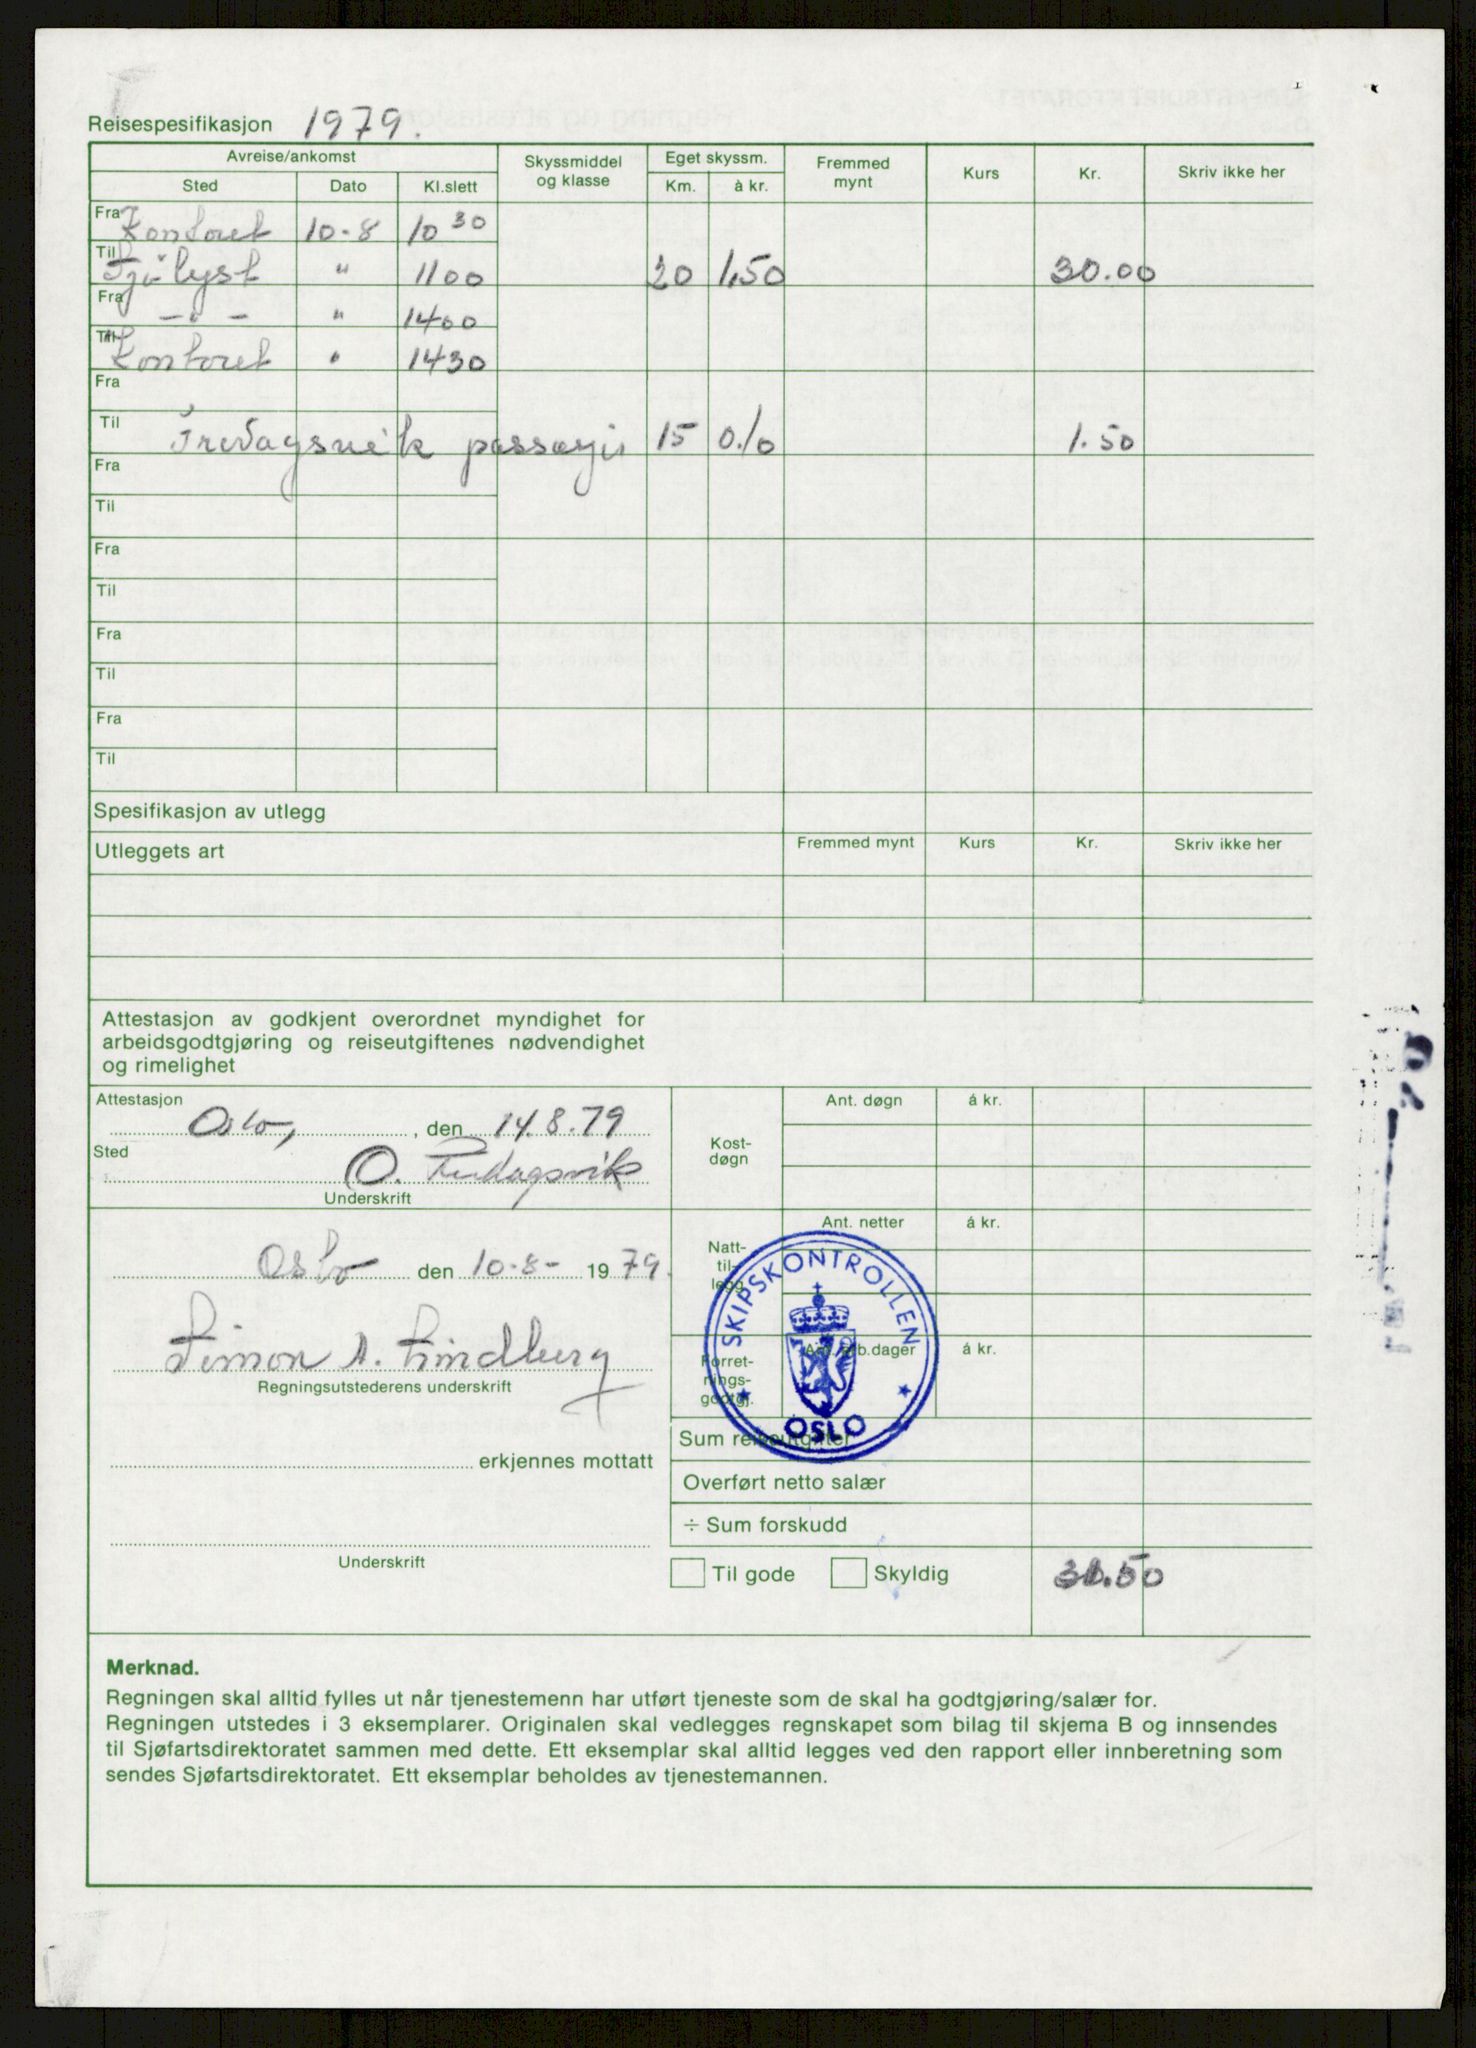 Reisespesifikasjon 1979.
Avreise/ankomst Skyssmiddel og klasse Eget skyssm. Fremmed mynt Kurs Kr. Skriv ikke her
Sted Dato Kl.slett Km. à kr.
Fra Kontoret 10-8 10 30
Til Sjølyst " 1100 20 1,50 30.00
Fra - " - " 1400
Til Kontoret " 1430
Fra
Til Fredagsvik passasjer 15 0.10 1.50
Fra
Til
Fra
Til
Fra
Til
Fra
Til
Spesifikasjon av utlegg
Utleggets art Fremmed mynt Kurs Kr. Skriv ikke her
Attestasjon av godkjent overordnet myndighet for
arbeidsgodtgjøring og reiseutgiftenes nødvendighet
og rimelighet
Attestasjon
Oslo, , den 14.8.79
Sted
O. Fredagsvik
Underskrift
Kost-
døgn
Ant. døgn á kr.
Oslo den 10-8- 1979.
Simon A. Lindberg
Regningsutstederens underskrift
Natt-
til-
legg
Ant. netter á kr.
Forret-
nings-
godtgj.
Ant. arb.dager á kr.
SKIPSKONTROLLEN
OSLO
erkjennes mottatt
Underskrift
Sum reiseutgifter
Overført netto salær
÷ Sum forskudd
Til gode Skyldig 31.50
Merknad.
Regningen skal alltid fylles ut når tjenestemenn har utført tjeneste som de skal ha godtgjøring/salær for.
Regningen utstedes i 3 eksemplarer. Originalen skal vedlegges regnskapet som bilag til skjema B og innsendes
til Sjøfartsdirektoratet sammen med dette. Ett eksemplar skal alltid legges ved den rapport eller innberetning som
sendes Sjøfartsdirektoratet. Ett eksemplar beholdes av tjenestemannen.